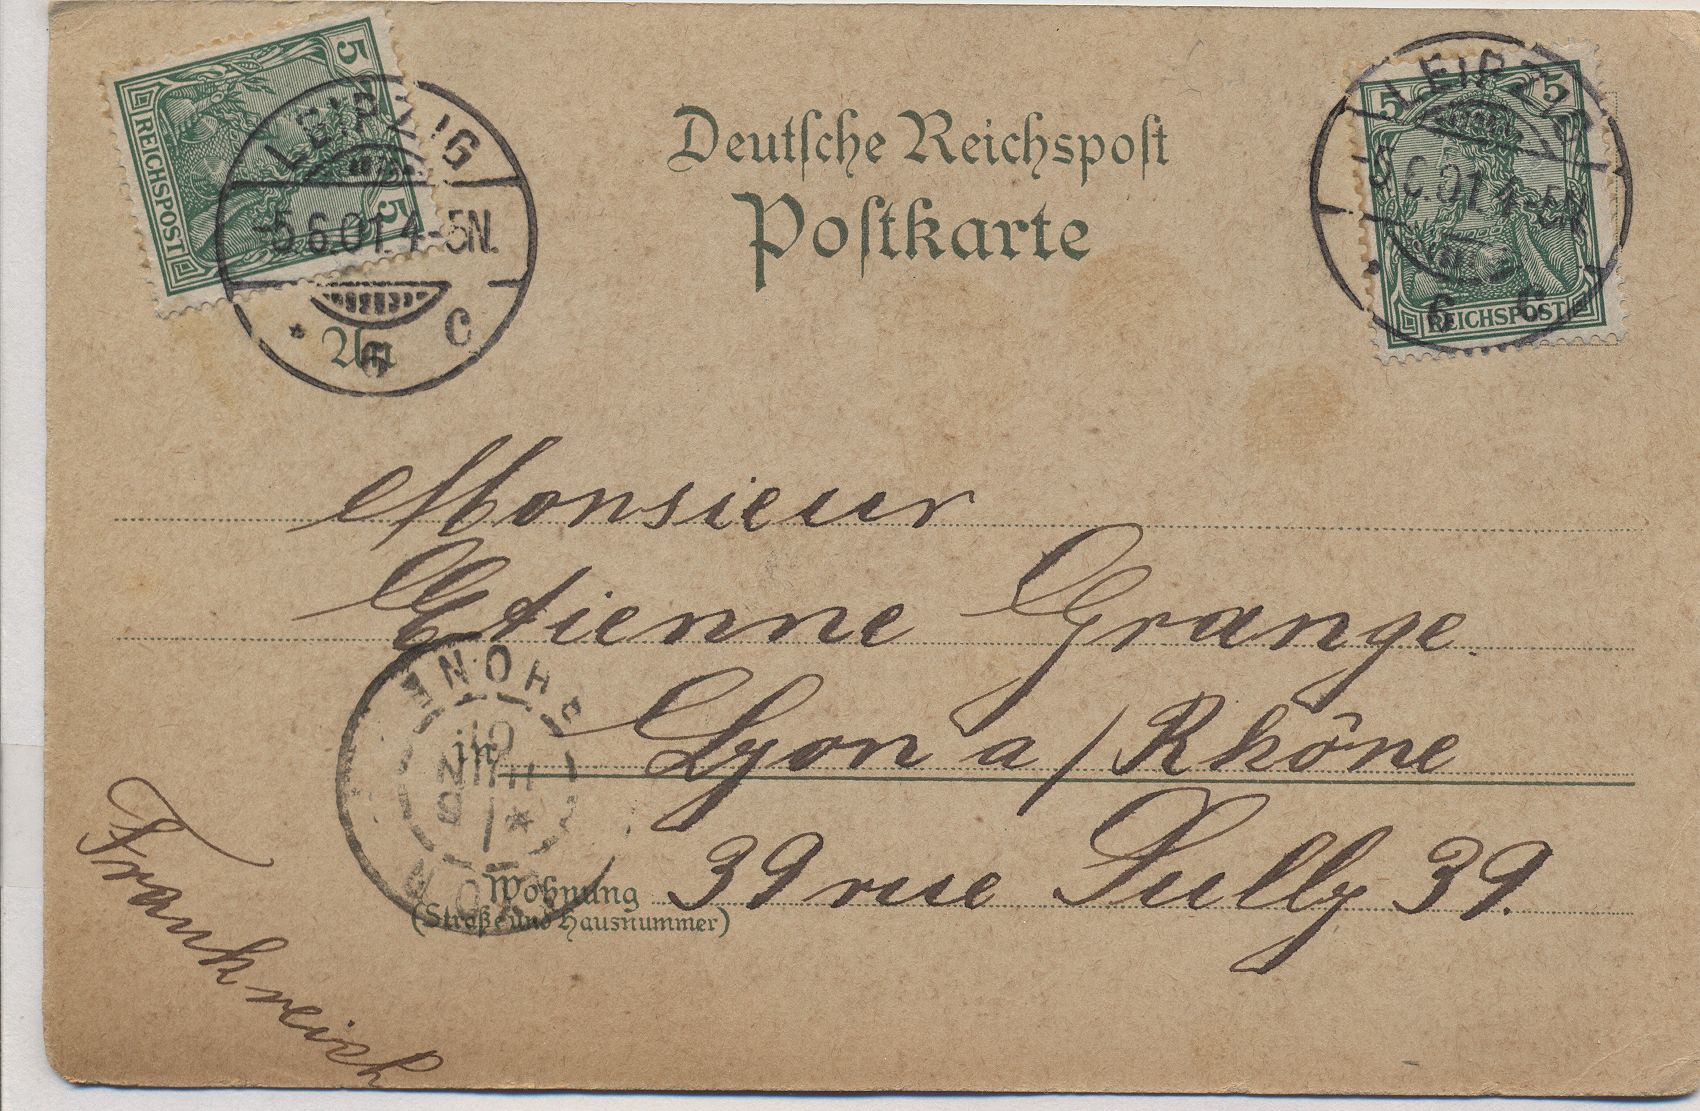 5
5
REICHSPOST
LEIPZIG
-5.6.01.4-5N.
* 6 C
5 5
REICHSPOST
LEIPZIG
5.6.01.4-5N.
* 6 C
Deutsche Reichspost
Postkarte
An
Monsieur
Etienne Grange.
in Lyon a/Rhône
Wohnung 39 rue Sully 39.
(Straße und Hausnummer)
Frankreich
RHONE
01
JUIN